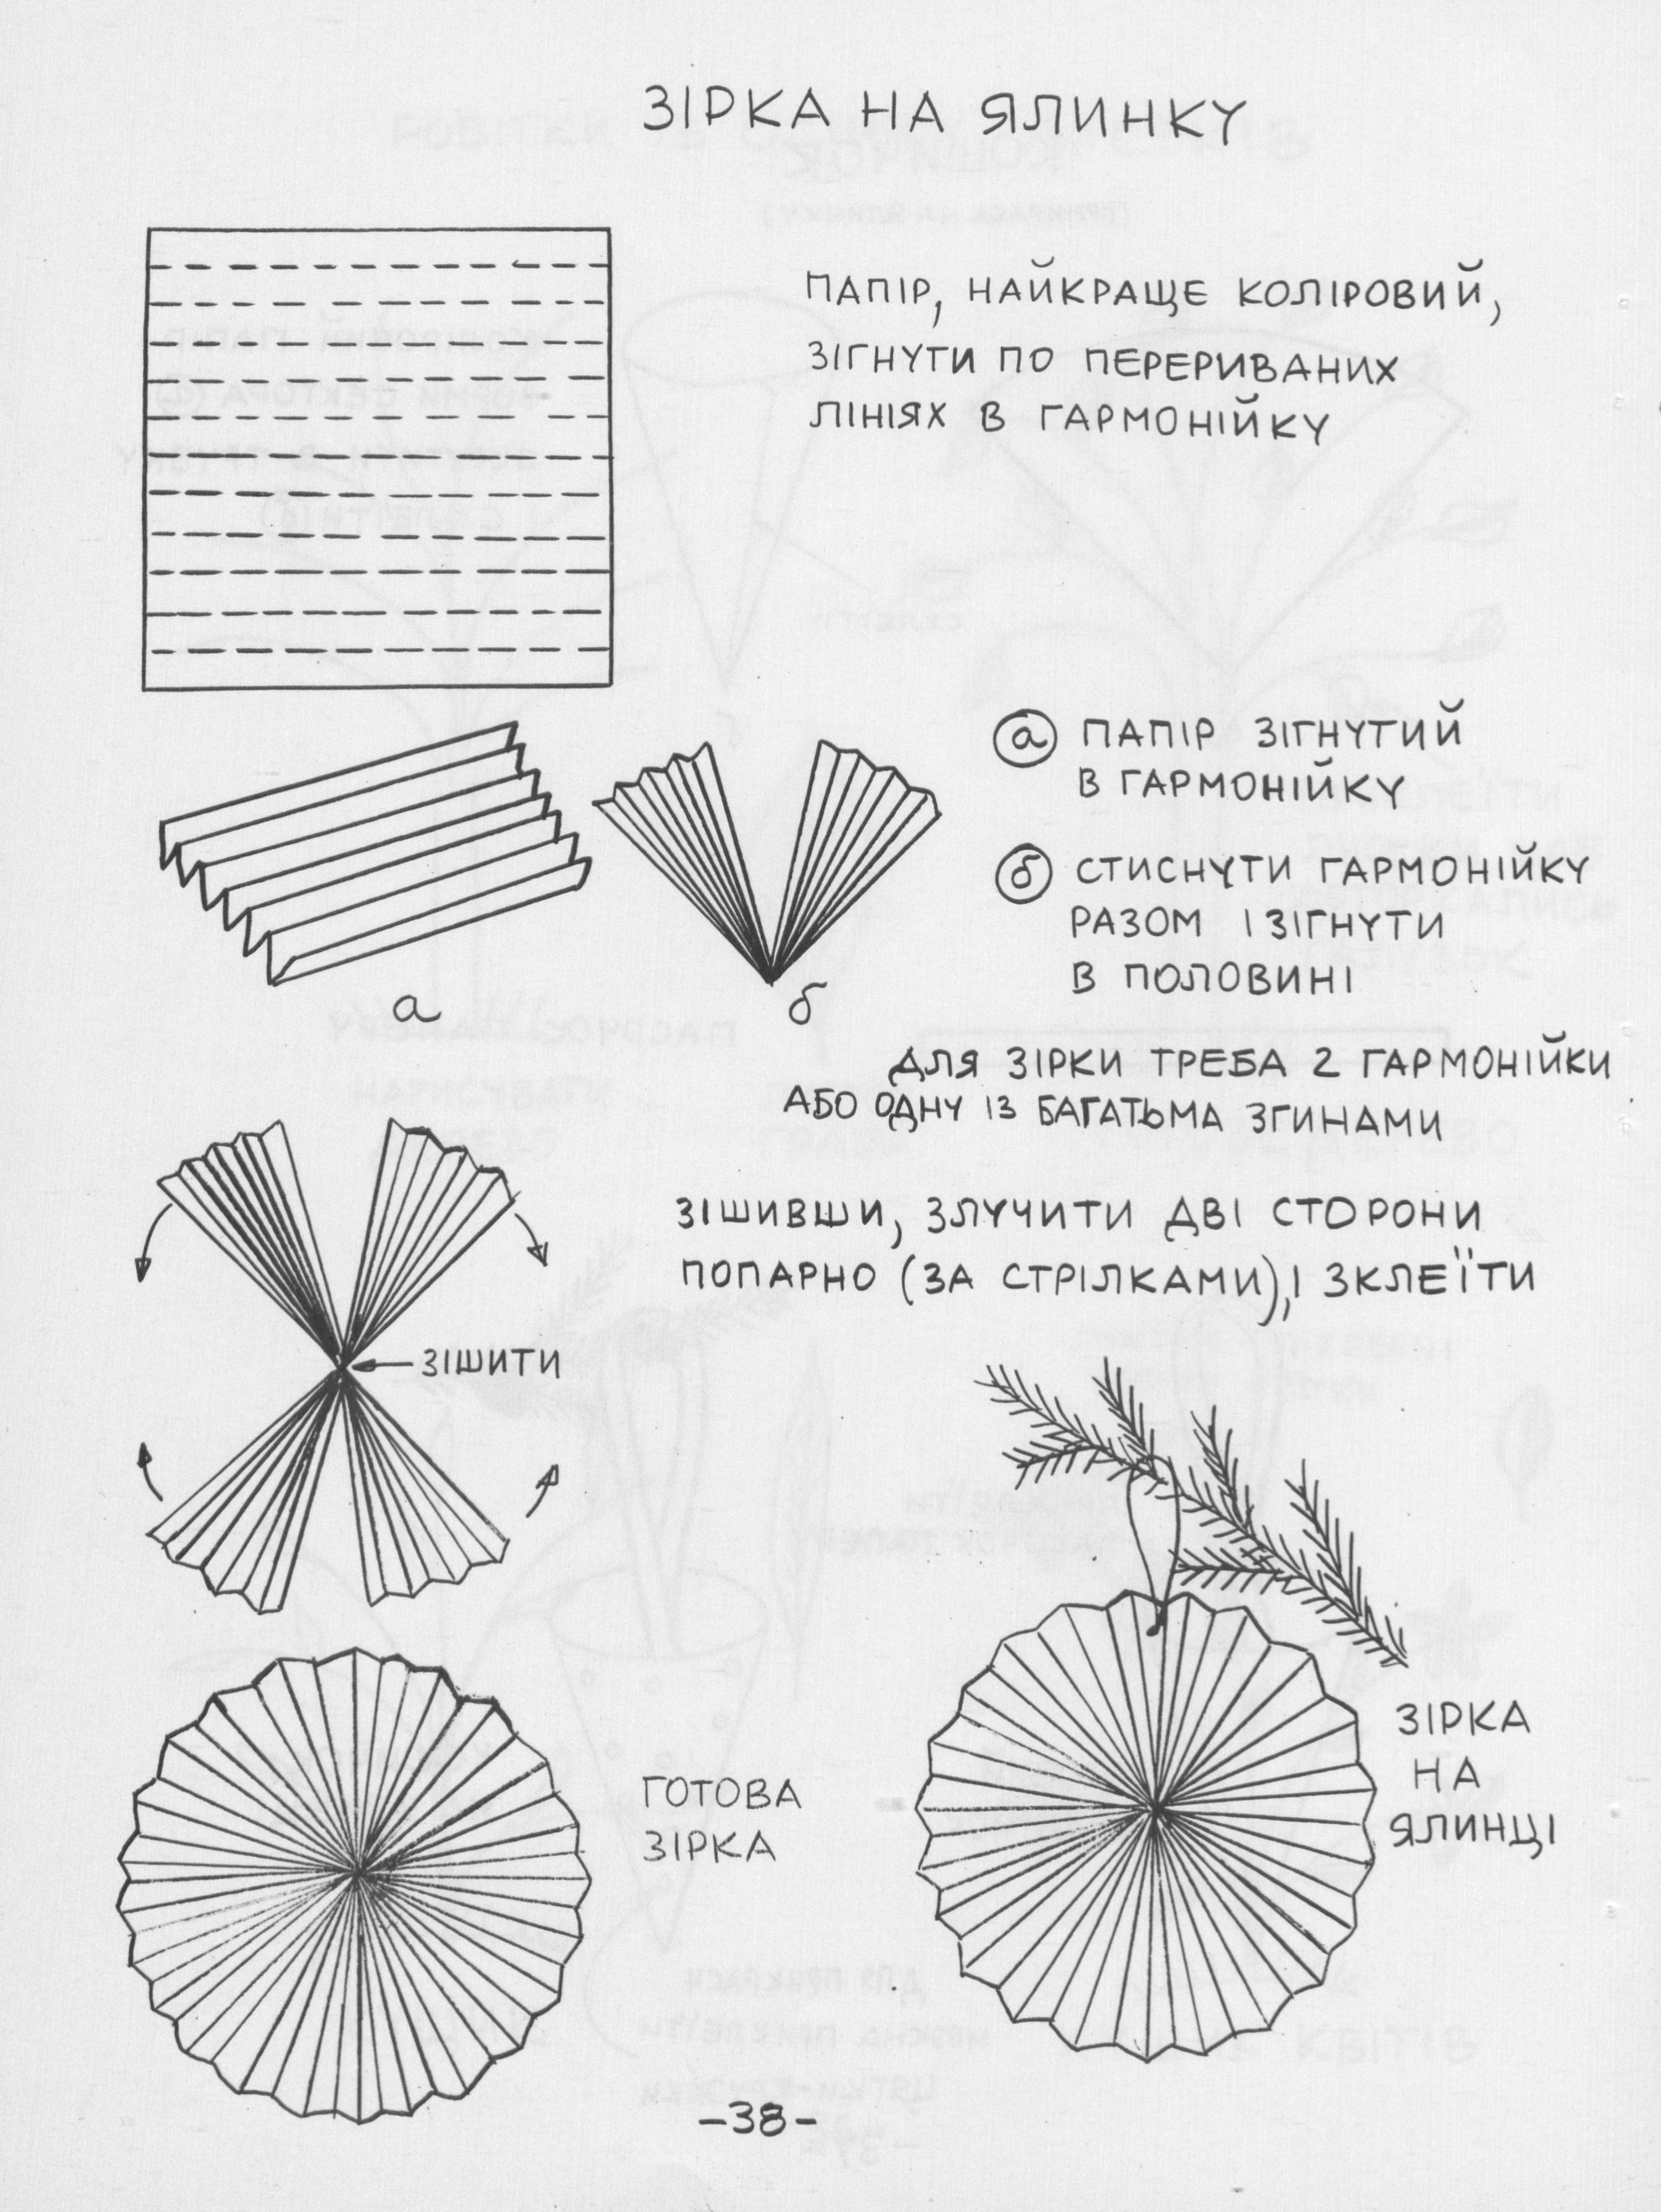 ЗІРКА НА ЯЛИНКУ
ПАПІР, НАЙКРАЩЕ КОЛІРОВИЙ,
ЗІГНУТИ ПО ПЕРЕРИВАНИХ
ЛІНІЯХ В ГАРМОНІЙКУ
а ПАПІР ЗІГНУТИЙ
В ГАРМОНІЙКУ
б СТИСНУТИ ГАРМОНІЙКУ
РАЗОМ І ЗІГНУТИ
В ПОЛОВИНІ
а
б
ДЛЯ ЗІРКИ ТРЕБА 2 ГАРМОНІЙКИ
АБО ОДНУ ІЗ БАГАТЬМА ЗГИНАМИ
ЗІШИВШИ, ЗЛУЧИТИ ДВІ СТОРОНИ
ПОПАРНО (ЗА СТРІЛКАМИ), І ЗКЛЕЇТИ
ЗІШИТИ
ГОТОВА
ЗІРКА
ЗІРКА
НА
ЯЛИНЦІ
-38-